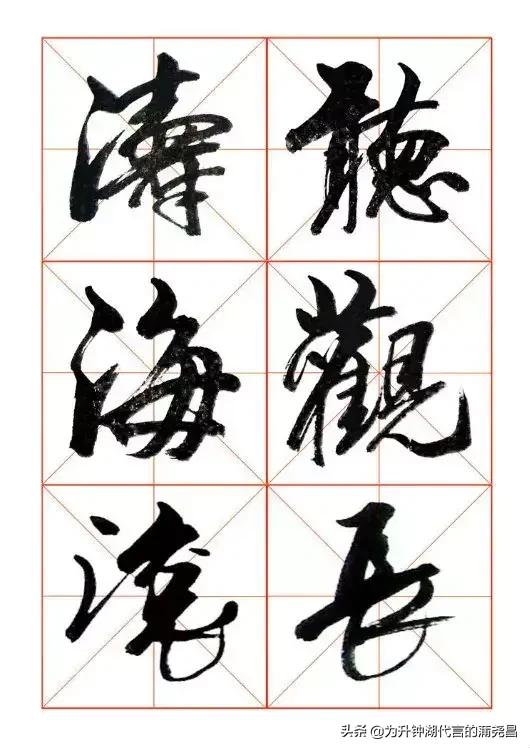 聽濤
觀海
長流
头条 @为升钟湖代言的蒲尧昌